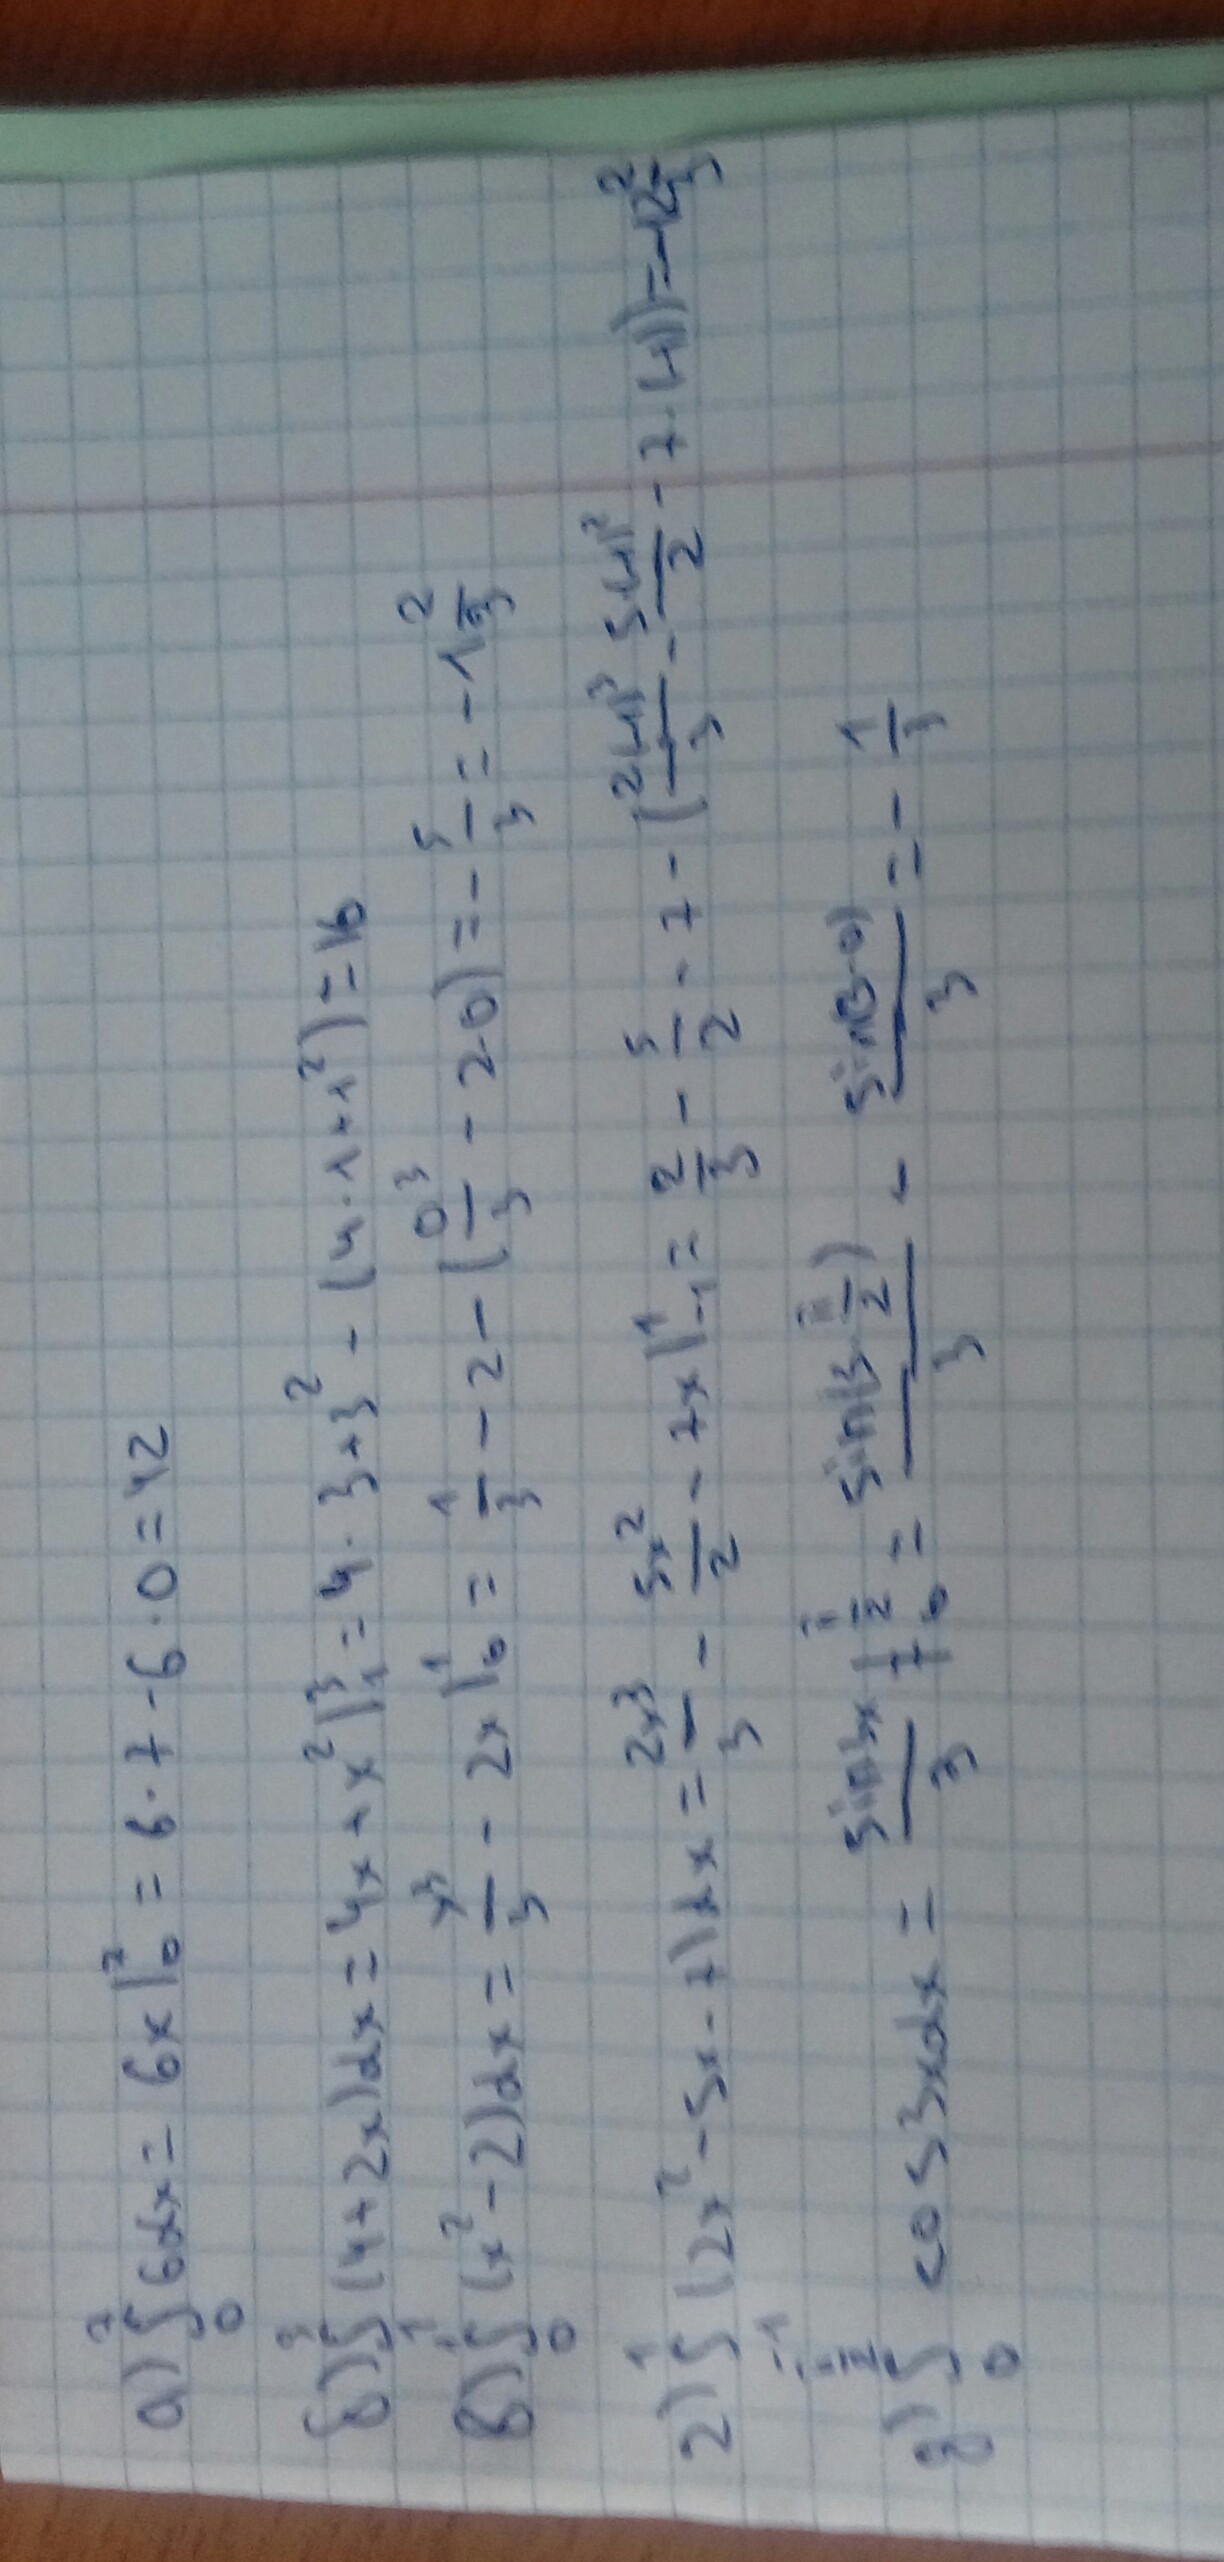 а) ∫₀⁷ 6dx = 6x|₀⁷ = 6·7-6·0=42
б) ∫₁³ (4+2x)dx = 4x+x²|₁³ = 4·3+3² - (4·1+1²)=16
в) ∫₀¹ (x²-2)dx = x³/3 - 2x|₀¹ = 1/3 - 2 - (0³/3 - 2·0) = -5/3 = -1 2/3
г) ∫₋₁¹ (2x²-5x-7)dx = 2x³/3 - 5x²/2 - 7x|₋₁¹ = 2/3 - 5/2 - 7 - (2(-1)³/3 - 5(-1)²/2 - 7·(-1)) = -12 2/3
д) ∫₀^(π/2) cos3xdx = sin3x/3 |₀^(π/2) = sin(3·π/2)/3 - sin(3·0)/3 = -1/3